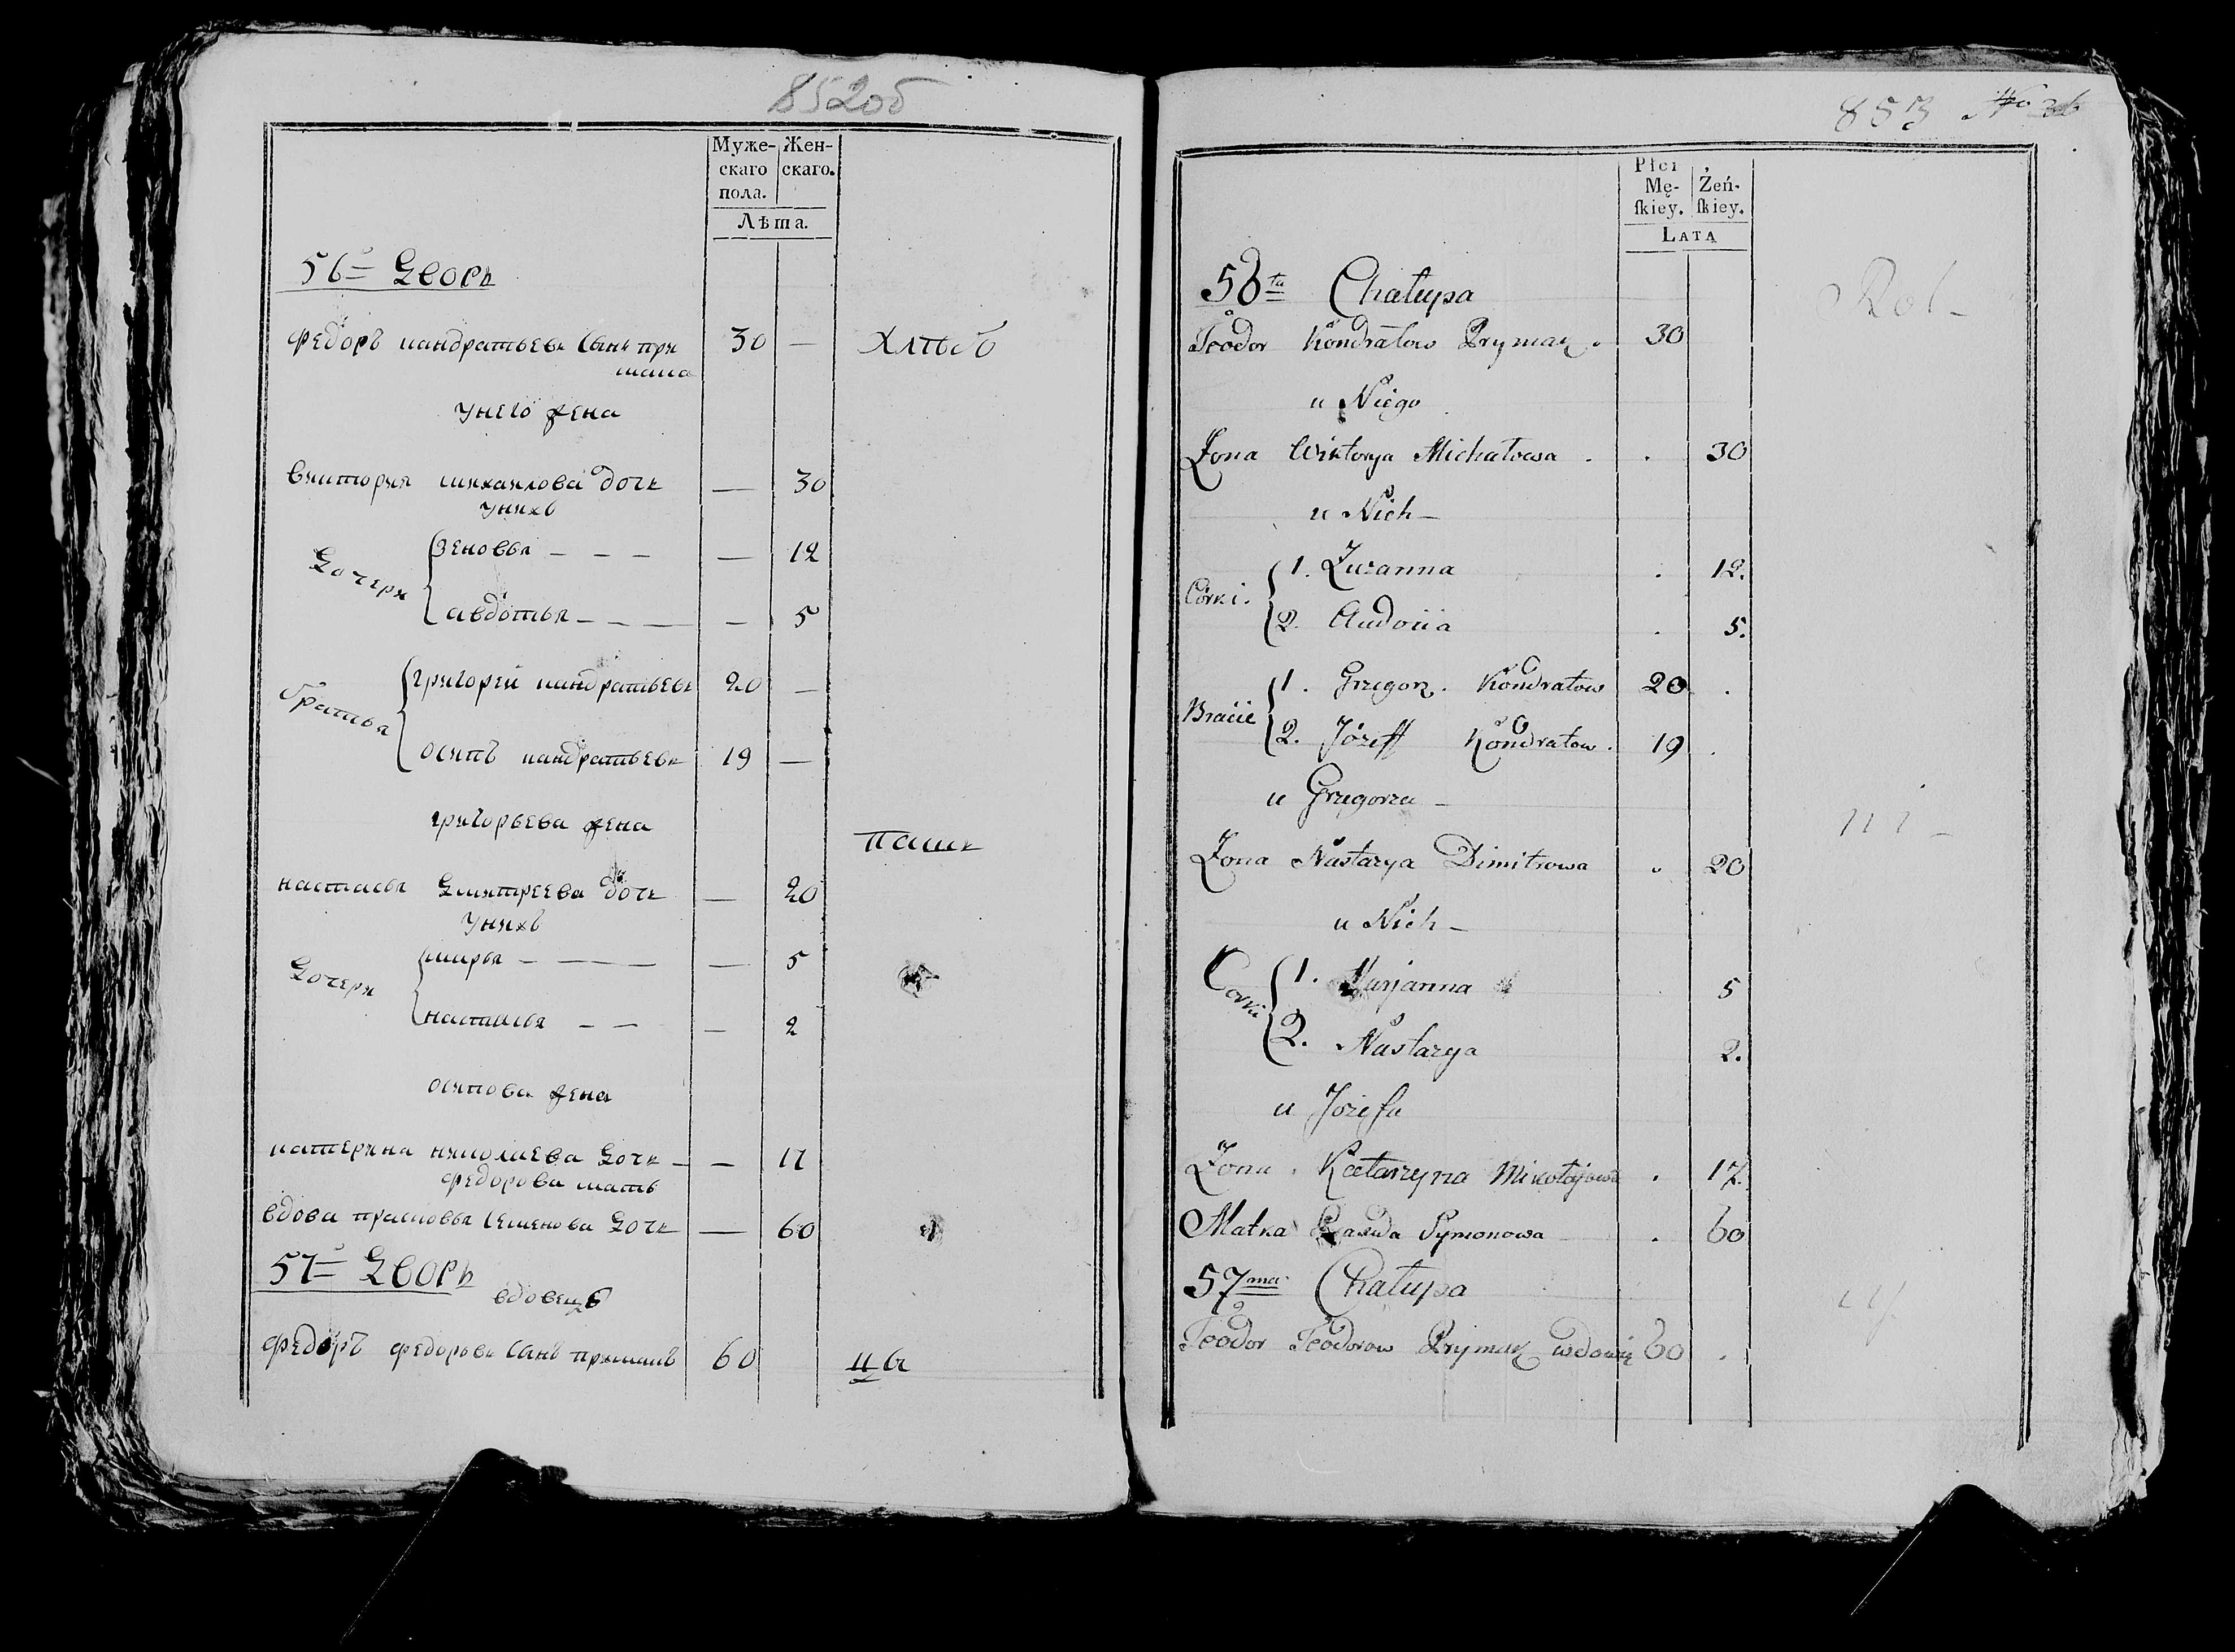 852об
Муже-
скаго
пола.
Жен-
скаго.
Лѣта.
56º Дворъ
Федоръ кандратьевъ сынъ при 30 — Хлѣб
мака
у него жена
виктория михаилова дочь — 30
у нихъ
Дочери
зеновья — — — — 12
авдотья — — — — 5
братья
григорей кандратьевъ 20 —
осипъ кандратьевъ 19 —
григорьева жена
паш
настасья Дмитреева дочь — 20
у нихъ
Дочери
марья — — — 5
настасья — — — 2
осипова жена
катерина николаева Дочь — — 17
федорова мать
вдова прасковья семенова Дочь — 60
57º Дворъ
вдовецъ
федоръ федоровъ сынъ примакъ 60 ца
853 No 36
Płci
Mę-
ſkiey.
Żeń-
ſkiey.
LATA
56ta Chałupa
Rol-
Teodor Kondratow Prymak. 30
u Niego
Żona Wiktorya Michałowa . . 30
u Nich -
Córki.
1. Zuzanna . 12.
2. Audocia . 5.
Bracie
1. Grzegorz. Kondratow 20 .
2. Józeff Kondratow. 19 .
u Grzegorza -
ni-
Żona Nastazya Dimitrowa . 20
u Nich -
Corki
1. Marjanna 5
2. Nastazya 2.
u Józefa
Żona . Katarzyna Mikołajowa . 17.
Matka Symonowa . 60
57ma Chałupa
Teodor Teodorow Prymak wdowiec 60 .